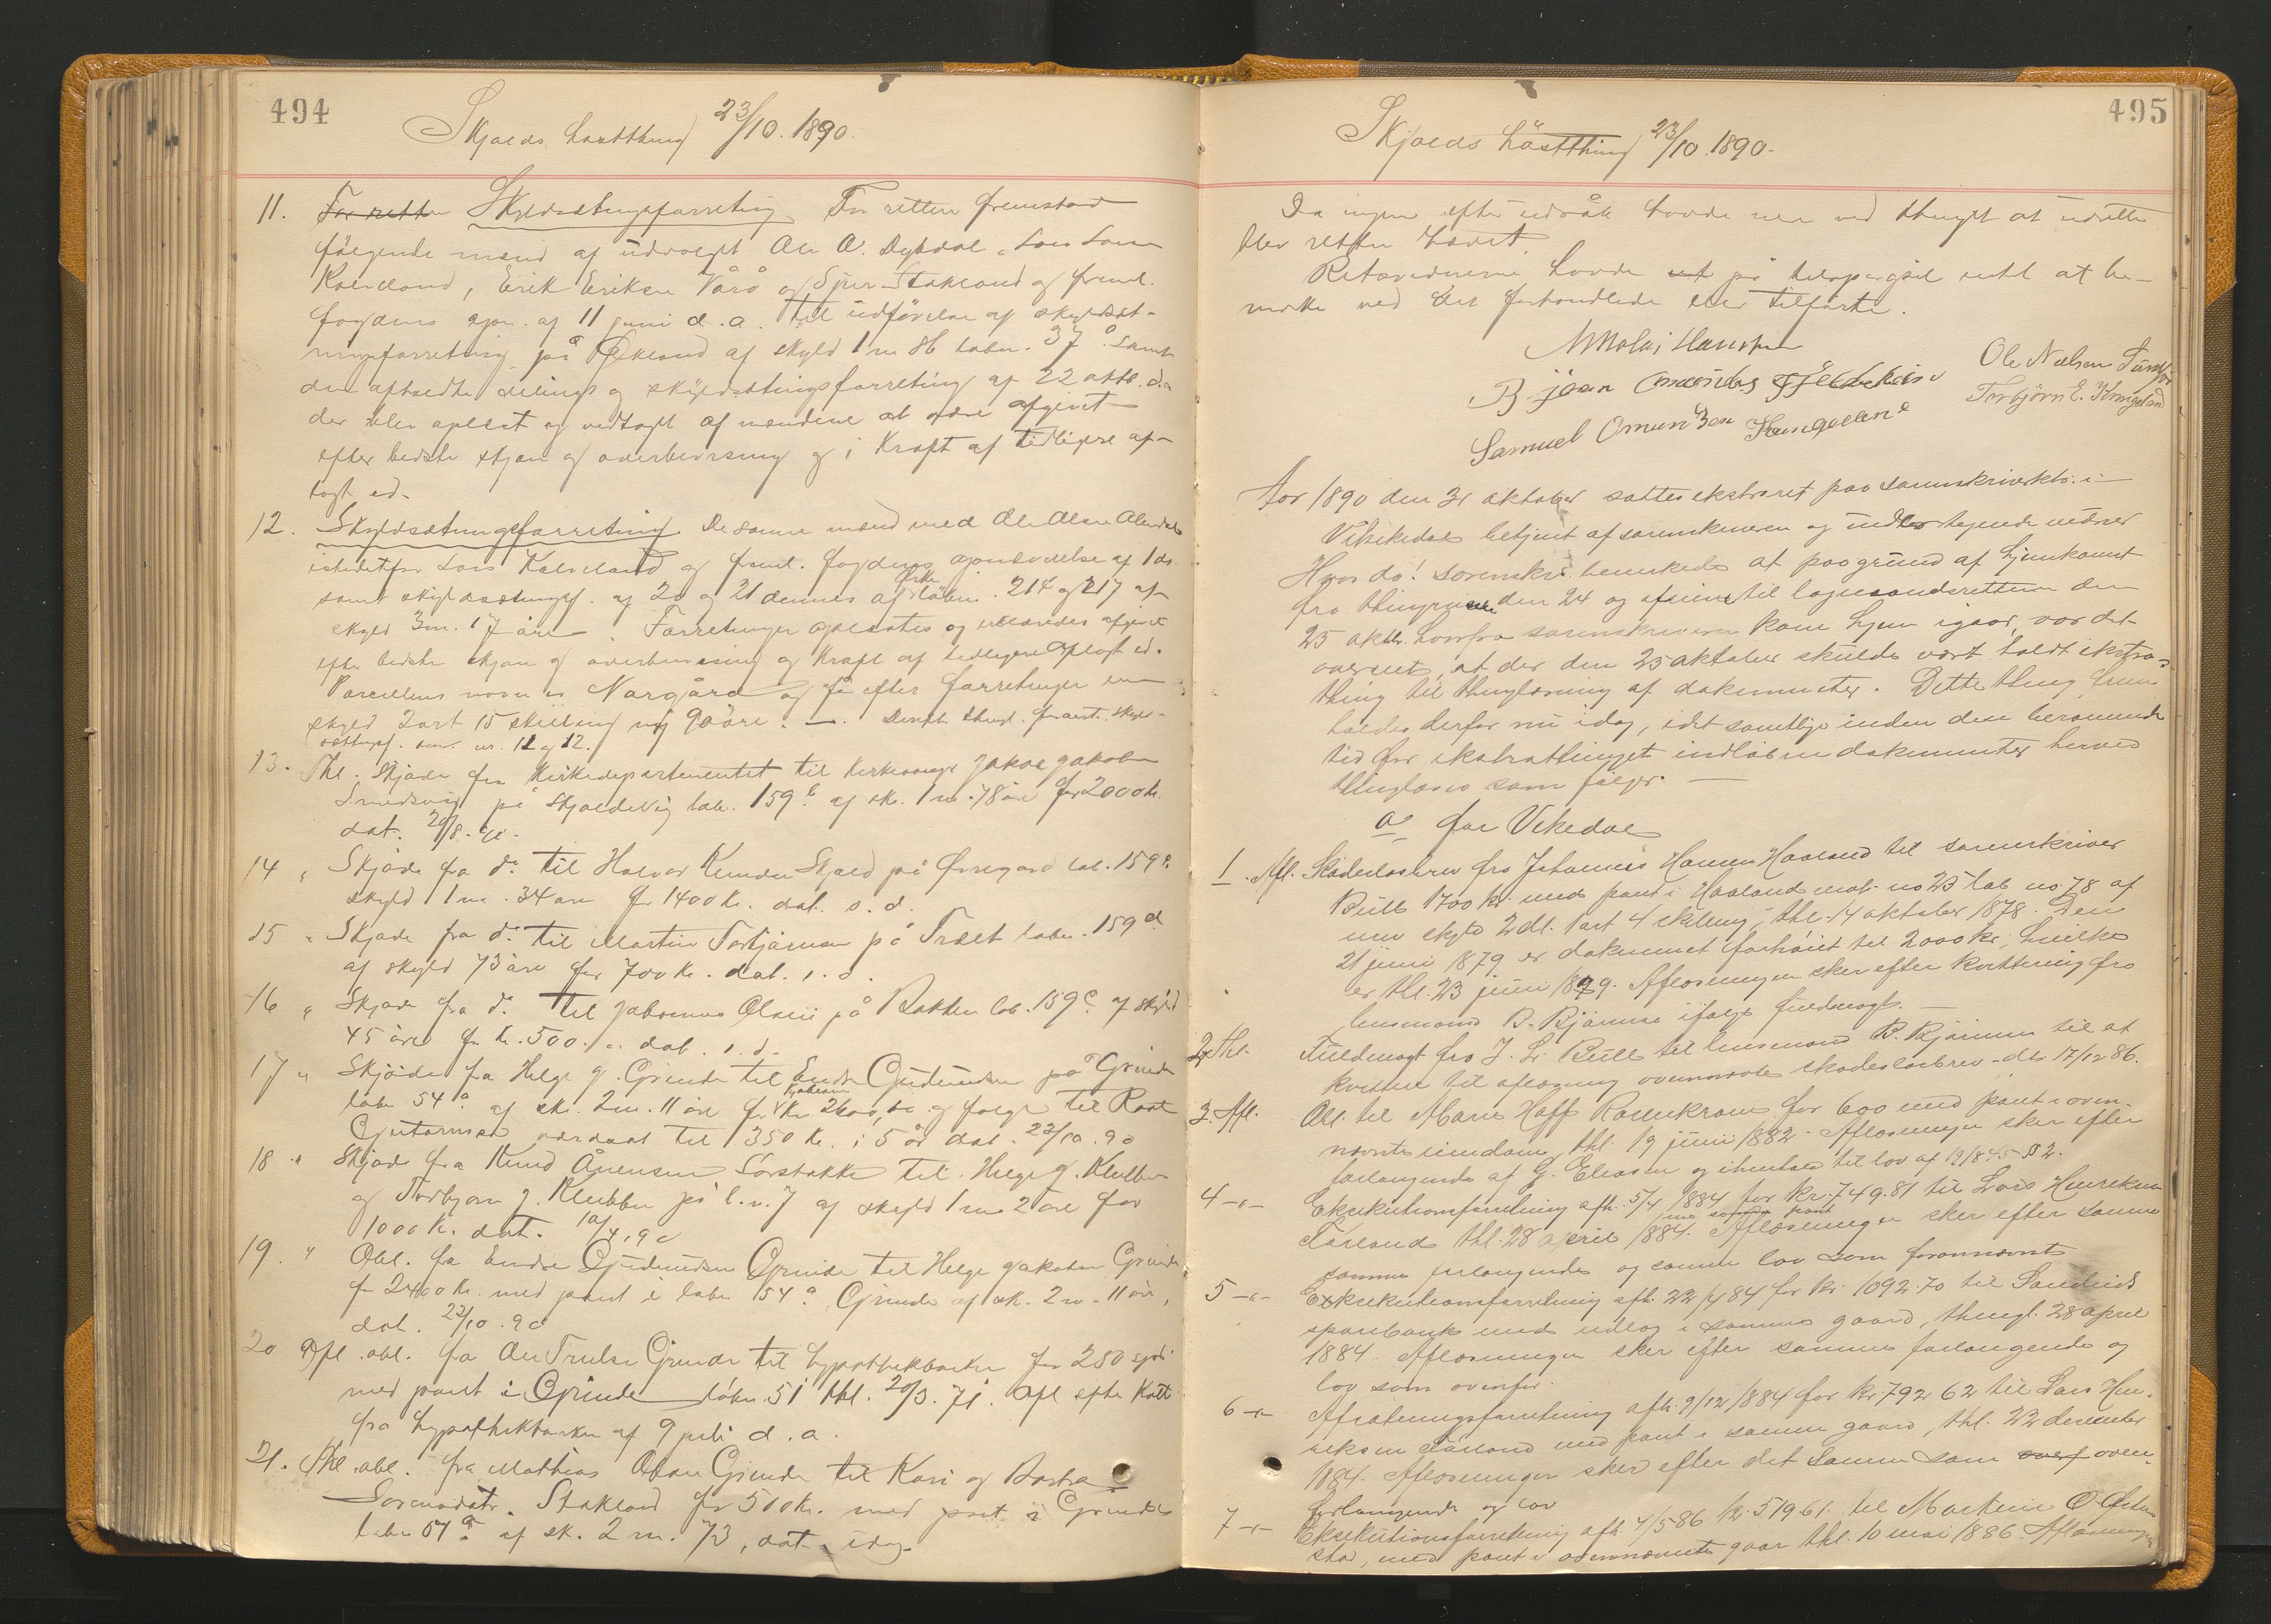 494
Skjolds höstthing 23/10. 1890.
11. For rette Skyldsætningsforretning For retten fremstod
følgende mænd af udvalget Ole A. Dybdal, Lars Larsen
Kalveland, Erik Eriksen Vårå og Sjur Stakland og freml.
fogdens opn. af 11 juni d.a. til udførelse af skyldsæt-
ningsforretning på Økland af skyld 1 m 86 løbn. 37 samt
den afholdte delings og skyldsætningsforretning af 22 oktb. d.a
der blev oplæst og vedtaget af mændene at være afgivet
efter bedste skjøn og overbevisning og i Kraft af tidligere af-
lagt ed.
12. Skyldsætningsforretning De samme mænd med Ole Olsen
istedetfor Lars Kalveland og freml. fogdens opnævnelse af 1 ds.
samt skyldsætningsf. af 20 og 21 dennes af løbn. 214 og 217 af
skyld 3 m. 17 øre. Forretningen oplæstes og erklæredes afgivet
efter bedste skjøn og overbevisning og Kraft af tidligere aflagt ed.
Parcellens navn er Norgård og får efter forretningen en
skyld 2 ort 15 skilling ny 90 øre. Derpå thingl. foranst. skyld-
sætningsf. nr. 11 og 12.
13. Thl. Skjøde fra Kirkedepartementet til Kirkesanger Jakob Jakobsen
Smedsvig på Skjoldevig løbn. 159 b af sk. 1 m. 78 øre for 2000 kr.
dat. 20/8. 90.
14 " Skjøde fra do til Halvor Knudsen Skjold på løb. 159
skyld 1 m. 34 øre for 1400 kr. dat. s. d.
15 " Skjøde fra do til Martin Torbjørnsen på Træet løbn. 159 d
af skyld 73 øre for 700 kr. dat. s. d.
16 " Skjøde fra do til Johannes Olsen på Bakken løb. 159 e af skyld
45 øre for kr. 500. dat. s. d.
17 " Skjøde fra Helge J. Grinde til Endre Gudmundsen på Grinde
løbn 54 a af sk. 2 m. 11 øre for kr 2600,00 og følge til Rart
Guttormsen værdsat til 350 kr. i 5 år dat. 22/10. 90
18 " Skjøde fra Knud Ånensen Sørstokke til Helge J. Klubben
og Torbjørn J. Klubben på l. n. 7 af skyld 1 m 2 øre for
1000 kr. dat. 10/4. 90
19. " Obl. fra Endre Gudmundsen Grinde til Helge Jakobsen Grinde
for 2400 kr. med pant i løbn 54 a Grinde af sk. 2 m. 11 øre,
dat. 22/10. 90
20 Afl. obl. fra Ole Trulsen Grinde til hypothekbanken for 280 spd.
med pant i Grinde løbn. 51 thl. 20/3. 71. Afl efter kvitt
fra hypothekbanken af 9 juli d. a.
21. Thl. obl. fra Mathias Olsen Grinde til Kari og Barta
Sørensdatr. Stakland for 500 kr. med pant i Grinde
løbn 51 a af sk. 2 m. 73, dat. idag.
495
Skjolds hösttthing 23/10. 1890.
Da ingen efter udråb havde mer ved thinget at udrette
blev retten hævet.
Retsvidnerne havde på tilspørgsel intet at be-
mærke ved det forhandlede eller tilførte.
Nikolai Hansen
Ole Nielsen
B. Jøran Omundsen
Torbjørn E. Kringeland
Samuel Omundsen
Aar 1890 den 31 oktober sattes ekstraret paa sorenskriverktr. i
Vikedal betjent af sorenskriveren og undertegnede vidner
Hvor da! sorenskr. bemerkede at paa grund af hjemkomst
fra thingreise den 24 og afreise til lagmandsretten den
25 oktbr. hvorfra sorenskriveren kom hjem igaar, var det
overseet, at der den 25 oktober skulde vært holdt ekstra-
thing til thinglæsning af dokumenter. Dette thing frem-
holdes derfor nu idag, idet samtlige inden den berammede
tid for ekstrathinget indløbne dokumenter herved
thinglæses som følger.
a for Vikedal
1. Afl. Skadesløsbrev fra Johannes Hansen Haaland til sorenskriver
Bull 1700 kr. med pant i Haaland matr. no 25 løb no 78 af
urev skyld 2 dl. 1 ort 4 skilling, thl. 14 oktober 1878. Den
21 juni 1879 er dokumentet forhøiet til 2000 kr, hvilket
er thl. 23 juni 1879. Aflæsningen sker efter kvittering fra
lensmand B. Bjarnesen ifølge fuldmagt.
2. Thl. Fuldmagt fra J. L. Bull til lensmand B. Bjarnesen til at
kvittere til aflæsning ovennævnte skadesløsbrev. dt. 17/12 86.
3. Afl. Obl. til Marie Hoff Rosenkrone for 600 med pant i oven-
nævnte eiendom, thl. 19 juni 1882. Aflæsningen sker efter
forlangende af G. Eliasen og i henhold til lov af 19/8 45 § 2.
4 -"- Eksekutionsforretning afh. 5/4 1884 for kr. 749.81 til Lars Henriksen
Førland thl. 28 april 1884. Aflæsningen sker efter samme
samme forlangende og samme lov som forannævnt
5 -"- Eksekutionsforretning afh. 22/4 84 for kr. 1092.70 til Sandeids
sparebank med udlæg i samme gaard, thingl. 28 april
1884. Aflæsningen sker efter samme forlangende og
lov som ovenfor.
6 -"- Afsætningsforretning afh. 9/12 1884 for kr. 792 62 til Lars Hen-
riksen Førland med pant i samme gaard, thl. 22 december
1884. Aflæsningen sker efter det samme som oven-
forlangende og lov
7 -"- Eksekutionsforretning afh. 4/5 86 kr. 519 61 til Martin O.
stad, med pant i ovennævnte gaar thl. 10 mai 1886. Aflæsningen